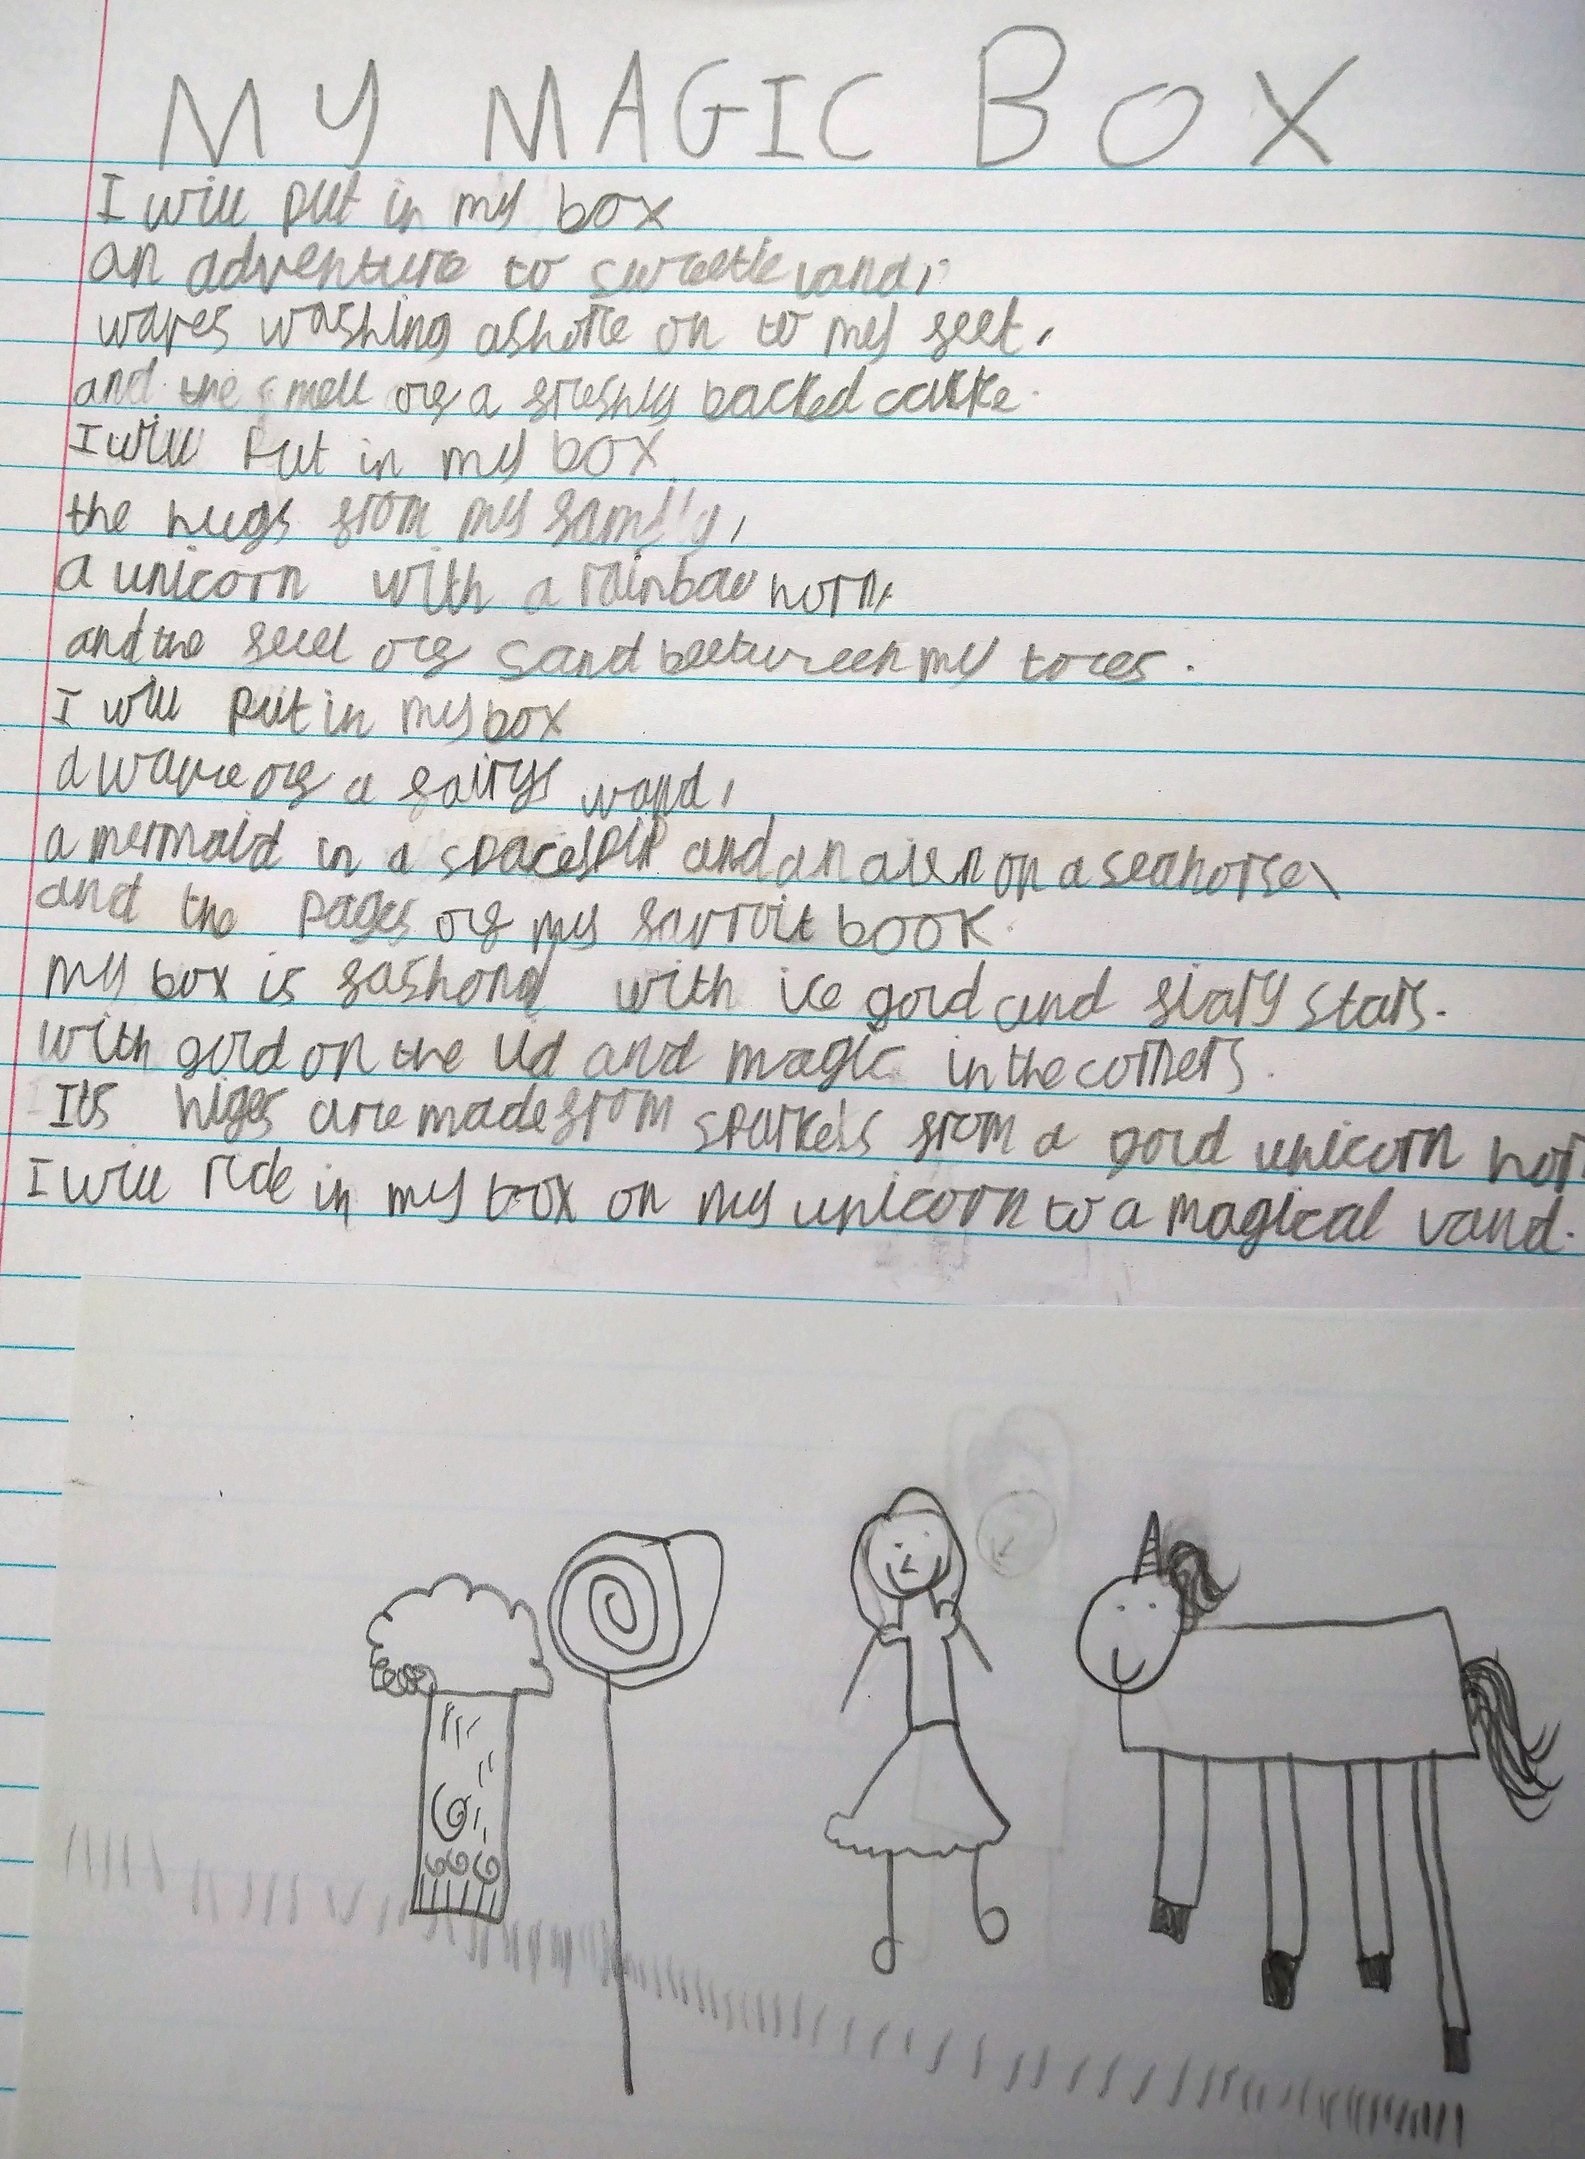 MY MAGIC BOX
I will put in my box
an adventure to sweetie land,
waves washing ashore on to my feet,
and the smell of a freshly backed cake.
I will put in my box
the hugs from my family,
a unicorn with a rainbow horn,
and the feel of sand beetween my toes.
I will put in my box
a wave of a fairys wand,
a mermaid in a spaceship and an alen on a seahorse,
and the pages of my favroit book.
my box is fashond with ice gold and slary stars.
with gold on the lid and magic in the corners.
Its higes are made from sparkels from a gold unicorn hor
I will ride in my box on my unicorn to a magical land.